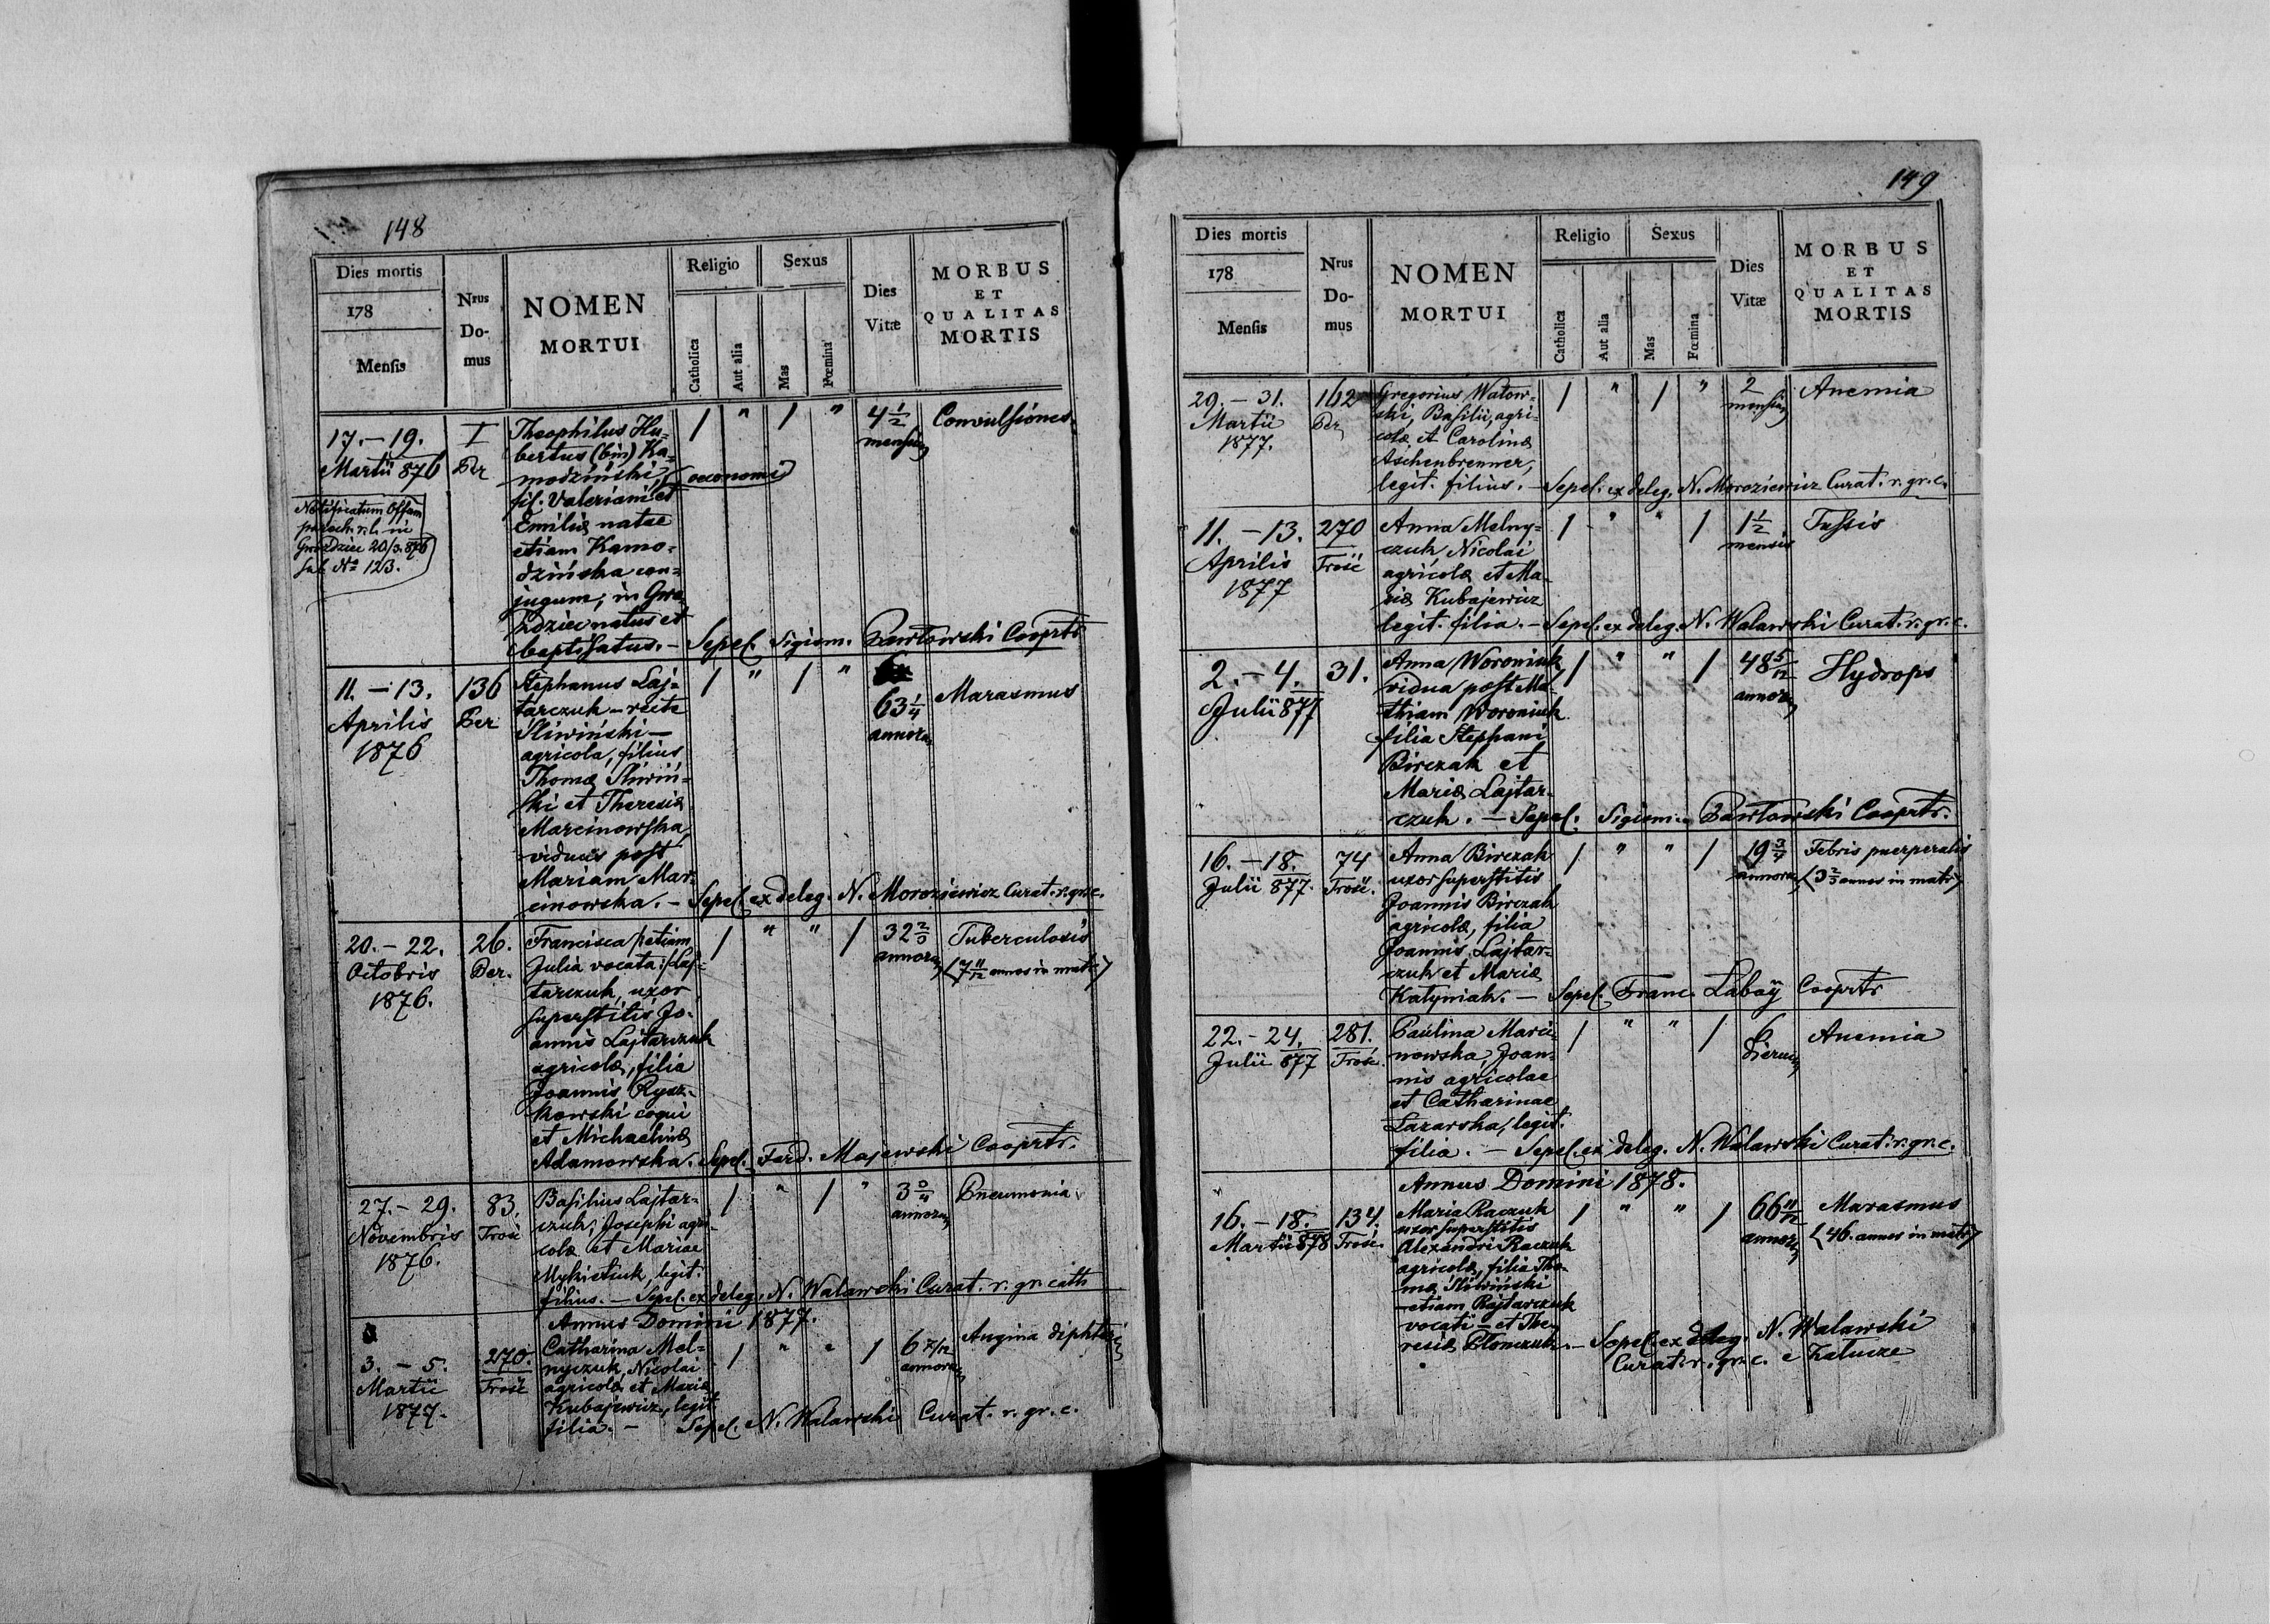 148
Dies mortis
178
Mensis
Nrus
Do-
mus
NOMEN
MORTUI
Religio
Catholica
Aut alia
Sexus
Mas
Fœmina
Dies
Vitæ
MORBUS
ET
QUALITAS
MORTIS
17. – 19.
Martii 876
I
Per
Theophilus Hu-
bertus (bin) Ka-
modziński, (oeconomi)
fil. Valeriani et
Emiliæ natae
etiam Kamo-
dzińska con-
jugum; in Gwo-
zdziec natus et
baptisatus. – Sepel. Sigism. Pawłowski Cooprtr
1 " 1 "
4 1/2
mensium
Convulsiones
Notificatum Offo
paroch. r. l. in
Gwozdziec 20/3 876
sub No 123.
11. – 13.
Aprilis
1876
136
Per
Stephanus Laj-
tarczuk – recte
Sliwiński –
agricola, filius
Thomæ Sliwiń-
ski et Theresiæ
Marcinowska,
viduus post
Mariam Mar-
cinowska. – Sepel. ex deleg. N. Moroziewicz Curat. r. gr. c.
1 " 1 "
63 1/4
annorum
Marasmus
20. – 22.
Octobris
1876.
26.
Per.
Francisca /: etiam
Julia vocata :/ Laj-
tarczuk, uxor
superstitis Jo-
annis Lajtarczuk
agricolæ, filia
Joannis Rysz-
kowski coqui
et Michaelinæ
Adamowska. Sepel. Ferd. Majewski Cooprtr.
1 " " 1
32 2/3
annorum
Tuberculosis
(7 11/12 annos in matr.)
27. – 29.
Novembris
1876.
83.
Trość
Basilius Lajtar-
czuk, Josephi agri-
colæ et Mariae
Mykietiuk, legit.
filius. – Sepel. ex deleg. N. Walawski Curat. r. gr. cath
1 " 1 "
3 3/4
annorum
Pneumonia
Annus Domini 1877.
3. – 5.
Martii
1877.
270.
Trość
Catharina Mel-
nyczuk, Nicolai
agricolæ et Mariæ
Kubajewicz, legit.
filia. – Sepel. N. Walawski Curat. r. gr. c.
1 " " 1
6 7/12
annorum
Angina diphteri
149
Dies mortis
178
Mensis
Nrus
Do-
mus
NOMEN
MORTUI
Religio
Catholica
Aut alia
Sexus
Mas
Fœmina
Dies
Vitæ
MORBUS
ET
QUALITAS
MORTIS
29. – 31.
Martii
1877.
162
Per
Gregorius Watow-
ski, Basilii, agri-
colæ et Carolinæ
Aschenbrenner,
legit. filius. – Sepel. ex deleg. N. Moroziewicz Curat. r. gr. c.
1 " 1 "
2
mensium
Anemia
11. – 13.
Aprilis
1877
270
Trość
Anna Melny-
czuk Nicolai
agricolæ et Ma-
riæ Kubajewicz
legit. filia. – Sepel. ex deleg. N. Walawski Curat. r. gr. c.
1 " " 1
1 1/2
mensis
Tussis
2. – 4.
Julii 877
31.
Anna Woroniuk
vidua post Ma-
thiam Woroniuk
filia Stephani
Birczak et
Mariæ Lajtar-
czuk. – Sepel. Sigism. Pawłowski Cooprtr.
1 " " 1
48 5/12
annorum
Hydrops
16. – 18.
Julii 877.
74
Trość.
Anna Birczak
uxor superstitis
Joannis Birczak
agricolæ, filia
Joannis Lajtar-
czuk et Mariæ
Katyniak. – Sepel. Franc. Łaboy Cooprtr
1 " " 1
19 3/4
annorum
Febris puerperalis
(3 2/3 annos in matr.)
22. – 24.
Julii 877
281.
Trość.
Paulina Marci-
nowska, Joan-
nis agricolae
et Catharinae
Lazarska, legit.
filia. – Sepel. ex deleg. N. Walawski Curat. r. gr. c.
1 " " 1
6
dierum
Anemia
Annus Domini 1878.
16. – 18.
Martii 878
134.
Trość.
Maria Raczuk
uxor superstitis
Alexandri Raczuk
agricolæ, filia Tho-
mæ Sliwiński
– etiam Rajtarczuk
vocati – et The-
resiæ Tłomczuk. – Sepel. ex deleg. N. Walawski
Curat. r. gr. c. e Załucze
1 " " 1
66 11/12
annorum
Marasmus
(46. annos in matr.)